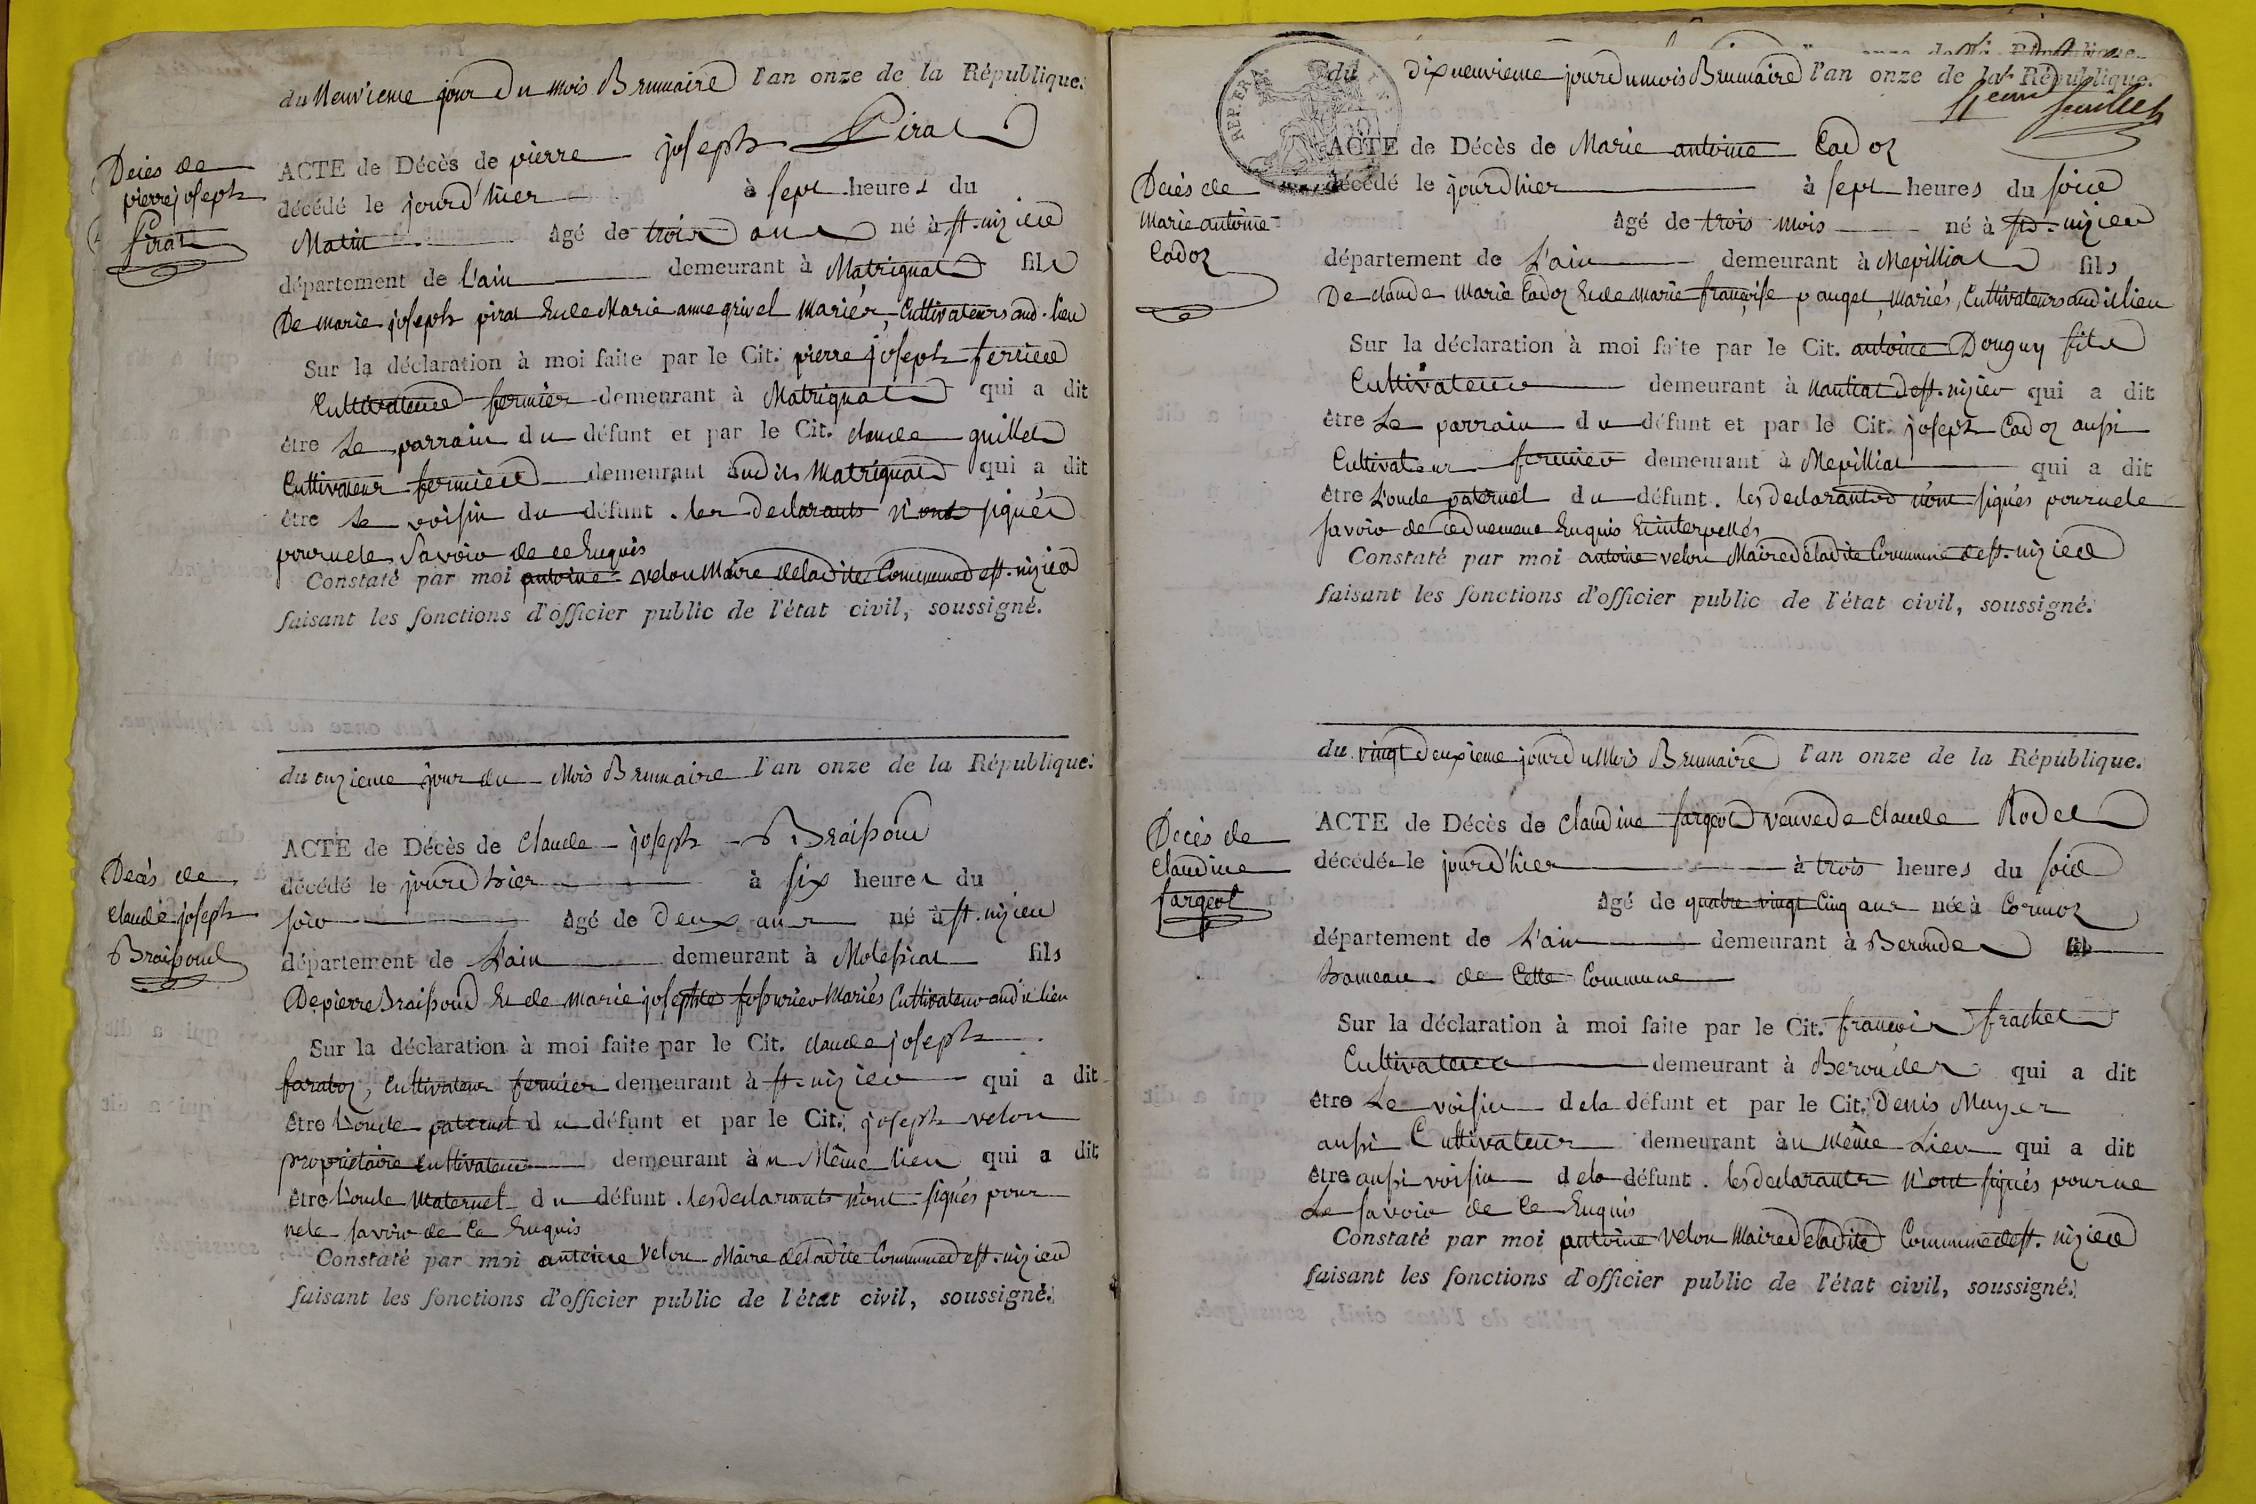 du Neuvieme jour Du mois Brumaire l'an onze de la République.
Decès de
pierre joseph
Pirat
ACTE de Décès de pierre joseph Pirat
décédé le jourd'hier à sept heures du
Matin âgé de trois ans né à st. nizier
département de L'ain demeurant à Matrignat fils
De marie joseph pirat Et de Marie anne grivel Mariés, Cultivateurs aud. lieu
Sur la déclaration à moi faite par le Cit. pierre joseph ferrier
Cultivateur fermier demeurant à Matrignat qui a dit
être Le parrain du défunt et par le Cit. claude guillet
Cultivateur fermier demeurant audit Matrignat qui a dit
être le voisin du défunt. les Declarants N'ont signés
pour ne le Savoir de ce Enquis
Constaté par moi antoine velon Maire de ladite Commune de st. nizier
faisant les fonctions d'officier public de l'état civil, soussigné.
du onzieme jour du Mois Brumaire l'an onze de la République.
Decès de
claude joseph
Braissoud
ACTE de Décès de claude joseph Braissoud
décédé le jourd'hier à six heures du
soir âgé de Deux ans né à st. nizier
département de L'ain demeurant à Molissiat fils
De pierre Braissoud Et de marie josephte Mariés Cultivateur audit lieu
Sur la déclaration à moi faite par le Cit. claude joseph
faraboz, cultivateur fermier demeurant à st. nizier qui a dit
être L'oncle paternel du défunt et par le Cit. joseph velon
propriétaire cultivateur demeurant au Même lieu qui a dit
être L'oncle Maternel du défunt. les declarants n'ont signés pour
ne le savoir de Ce Enquis
Constaté par moi antoine velon Maire de ladite Commune de st. nizier
faisant les fonctions d'officier public de l'état civil, soussigné.
REP. FRA.
11eme feuillet
du dix neuvieme jour du mois Brumaire l'an onze de la République.
Decès de
Marie antoine
Cadoz
ACTE de Décès de Marie antoine Cadoz
décédé le jourd'hier à sept heures du soir
âgé de trois mois né à st. nizier
département de L'ain demeurant à Mepilliat fils
De claude Marie Cadoz Et de marie françoise pauget, Mariés, Cultivateurs audit lieu
Sur la déclaration à moi faite par le Cit. antoine Donguy fils
Cultivateur demeurant à nantiat de st. nizier qui a dit
être Le parrain du défunt et par le Cit. joseph Cadoz aussi
Cultivateur fermier demeurant à Mepilliat qui a dit
être L'oncle paternel du défunt. les declarants n'ont signés pour ne le
savoir de ce duement Enquis Et interpellés
Constaté par moi antoine velon Maire de ladite Commune de st. nizier
faisant les fonctions d'officier public de l'état civil, soussigné.
du vingt deuxieme jour du Mois Brumaire l'an onze de la République.
Decès de
claudine
fargeot
ACTE de Décès de claudine fargeot veuve de claude Rodet
décédée le jourd'hier à trois heures du soir
âgé de quatre vingt Cinq ans née à Cormoz
département de L'ain demeurant à Beroudes fils
hameau de Cette Commune
Sur la déclaration à moi faite par le Cit. francois frachet
Cultivateur demeurant à Beroudes qui a dit
être Le voisin de la défunt et par le Cit. Denis Muyer
aussi Cultivateur demeurant au même Lieu qui a dit
être aussi voisin de la défunt. les declarants N'ont signés pour ne
Le savoir de Ce Enquis
Constaté par moi antoine velon Maire de ladite Commune de st. nizier
faisant les fonctions d'officier public de l'état civil, soussigné.